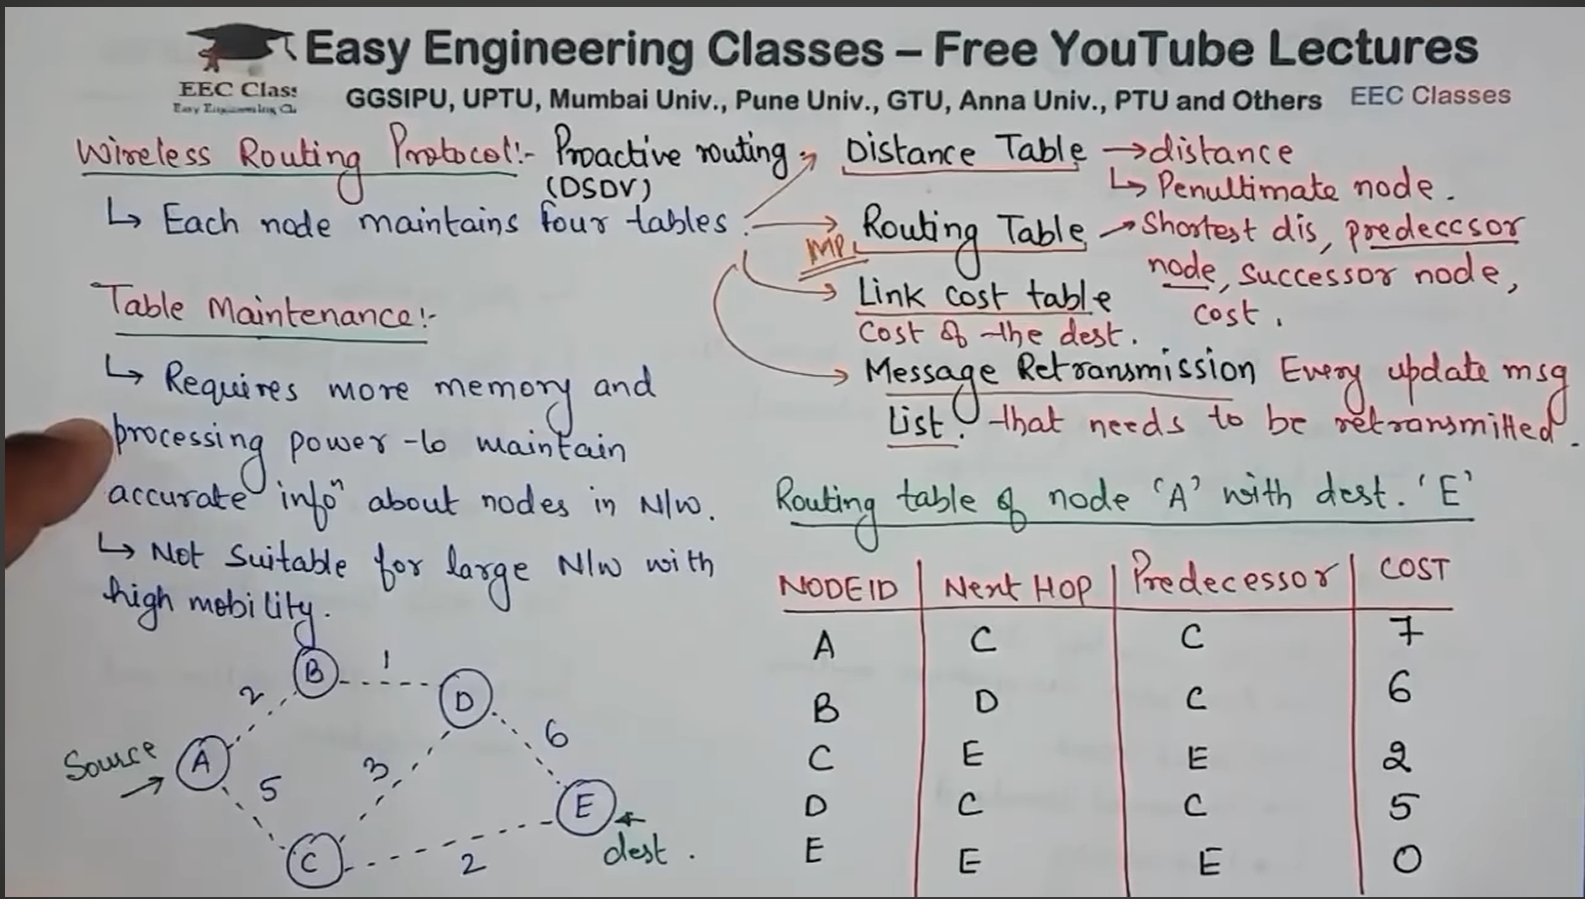 Easy Engineering Classes – Free YouTube Lectures
EEC Class
GGSIPU, UPTU, Mumbai Univ., Pune Univ., GTU, Anna Univ., PTU and Others
EEC Classes
Wireless Routing Protocol:- Proactive routing
(DSDV)
↳ Each node maintains four tables
Distance Table → distance
↳ Penultimate node.
Routing Table → Shortest dis, predeccsor
node, successor node,
cost.
IMP.
Link cost table
Cost of the dest.
Message Retransmission Every update msg
List. that needs to be retransmitted.
Table Maintenance:-
↳ Requires more memory and
processing power to maintain
accurate infoⁿ about nodes in N/W.
↳ Not Suitable for large N/W with
high mobility.
B 1 D
2 6
Source A 5 3 E
C 2 dest.
Routing table of node 'A' with dest. 'E'
NODE ID | Next HOP | Predecessor | COST
A C C 7
B D C 6
C E E 2
D C C 5
E E E 0